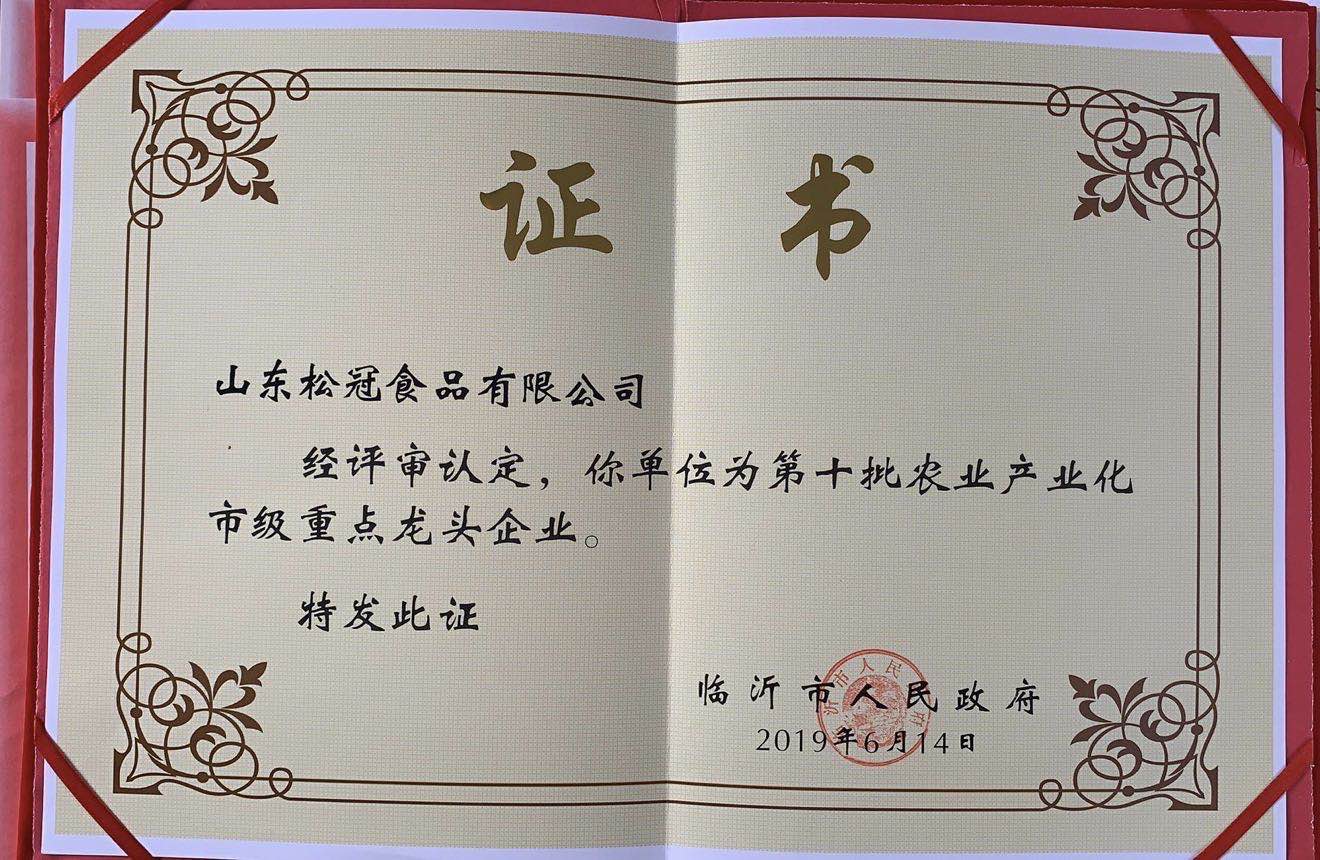 证书
山东松冠食品有限公司
经评审认定，你单位为第十批农业产业化
市级重点龙头企业。
特发此证
临沂市人民政府
2019年6月14日